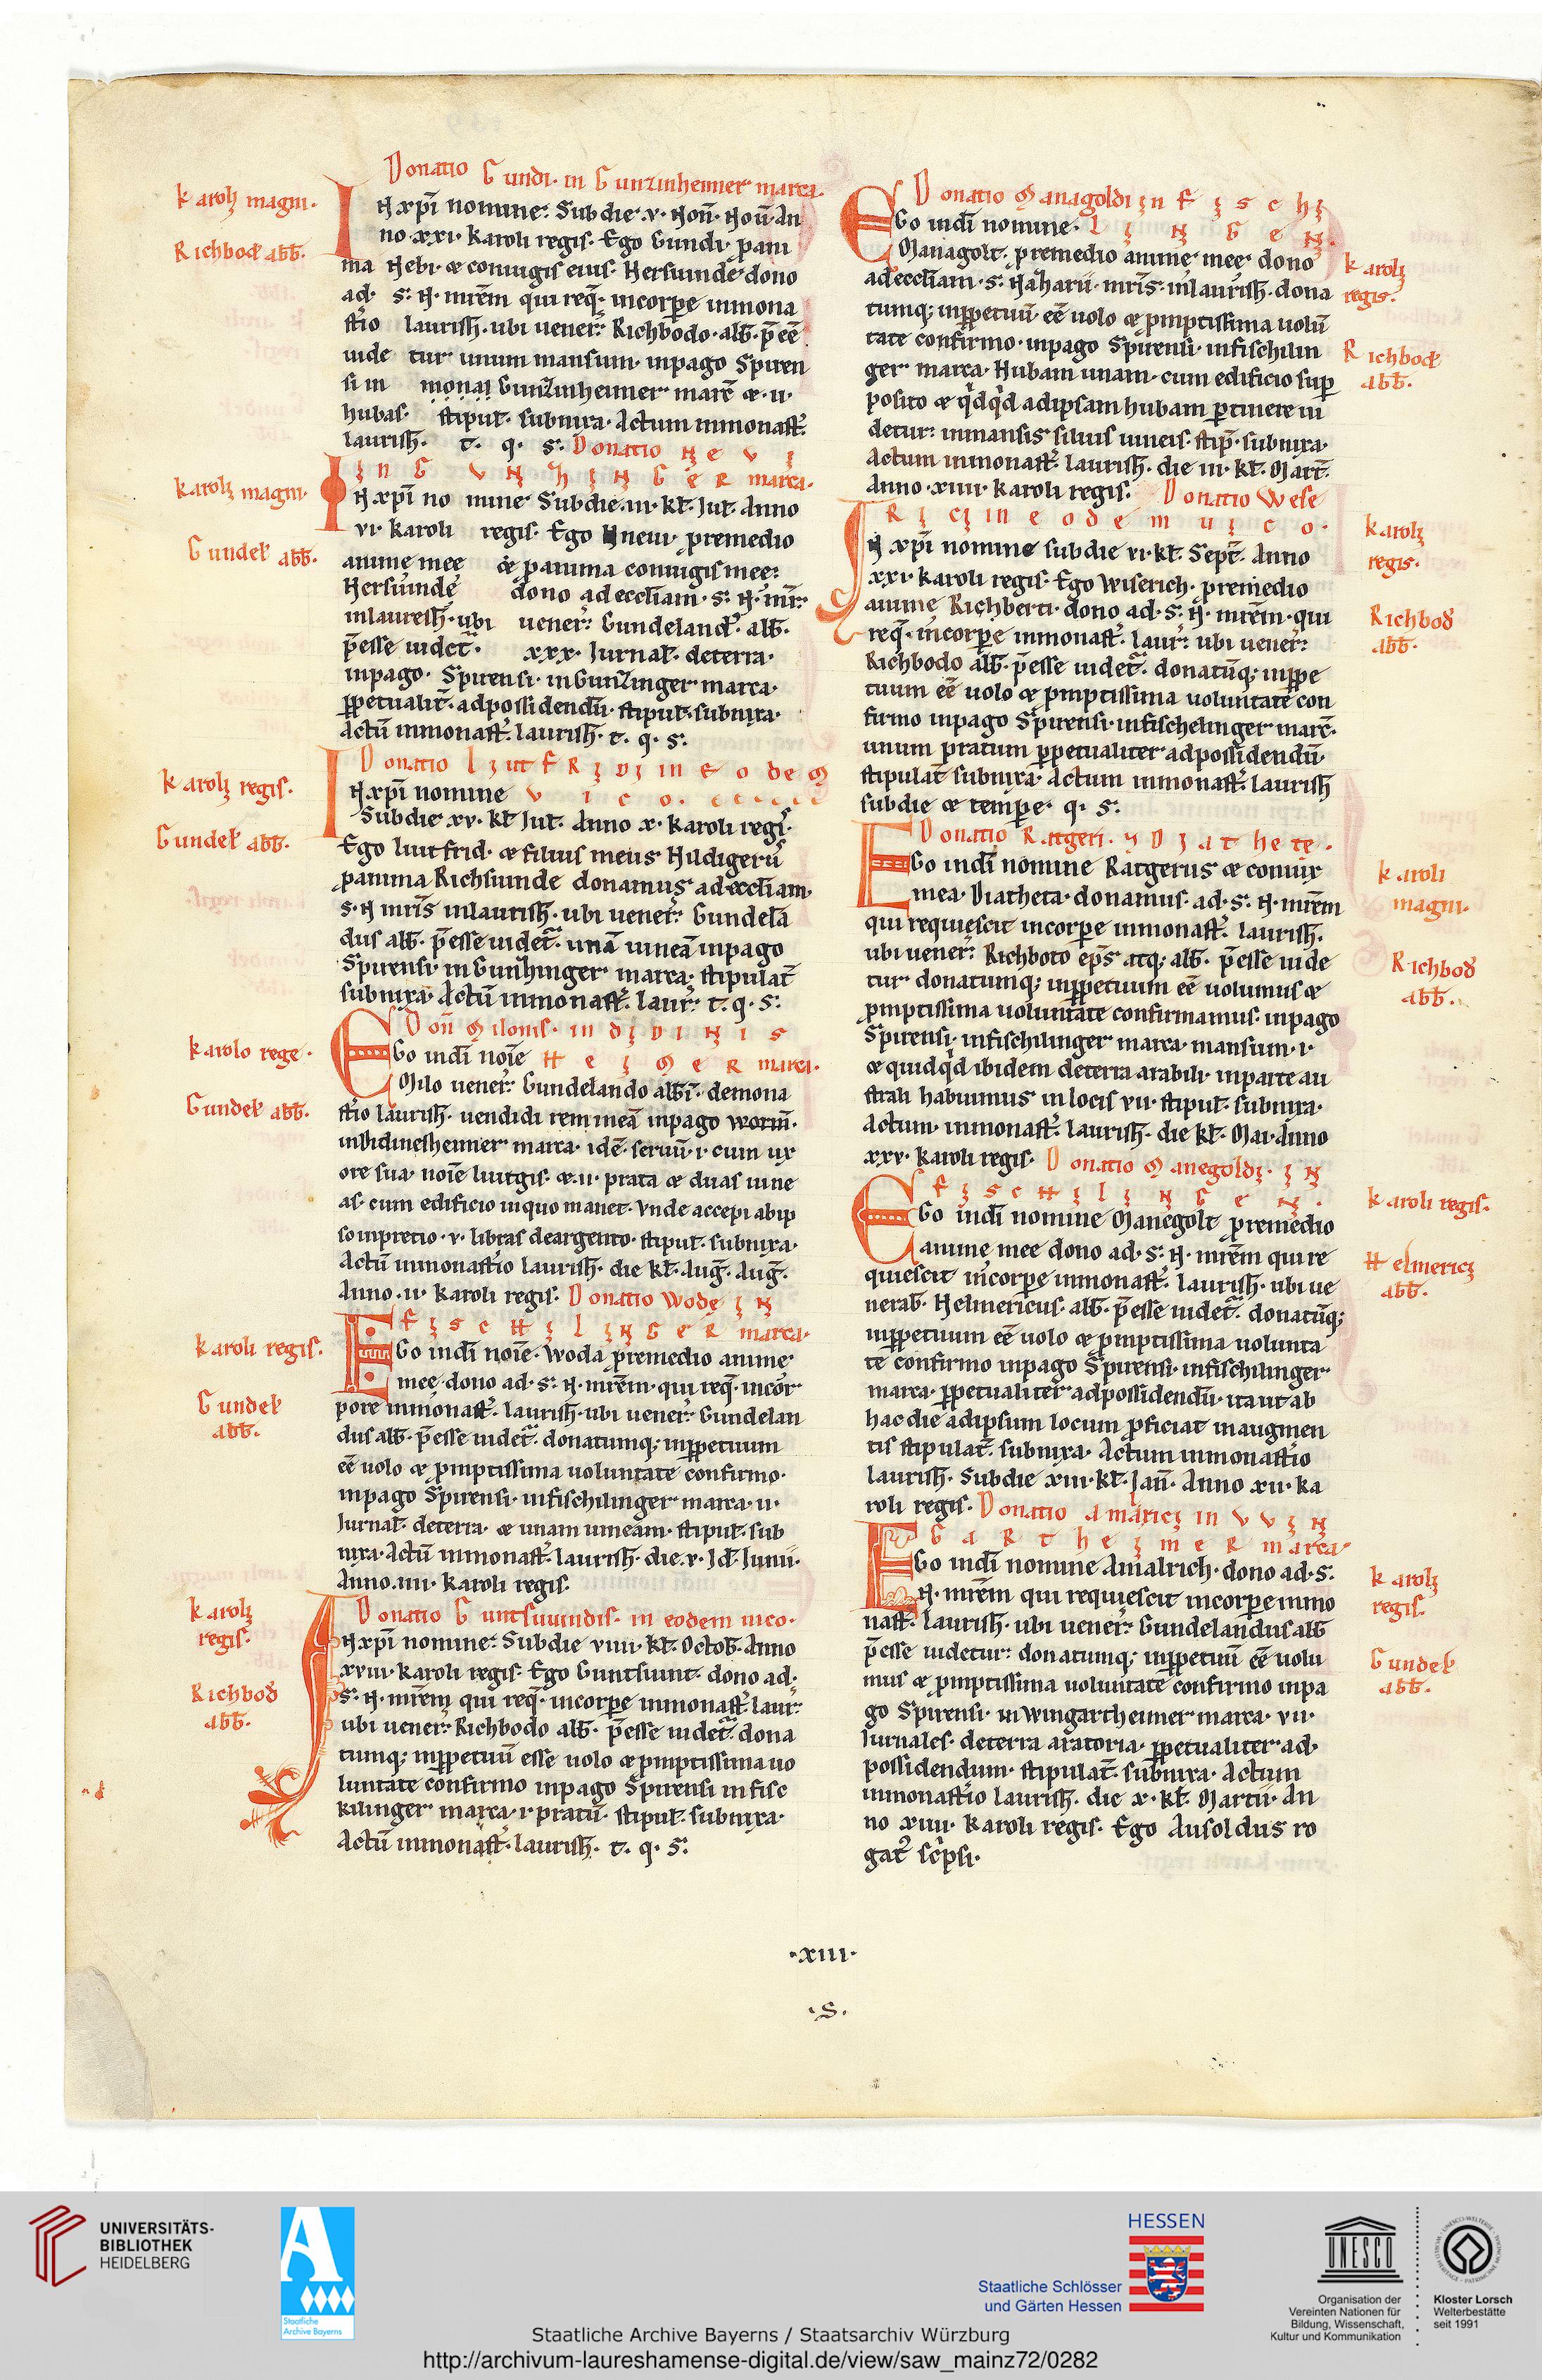 Donatio Gundi· in Gunzinheimer marca·
Karolị magni·
IN xp̄i nomine· Sub die ·v· Non̄· Nou̅· An
no ·xxi· Karoli regis· Ego Gundi· p̱ ani
Richbod abb̄·
ma Nebi· & coniugis eius· Hersuinde dono
ad· s· N· mr̄em qui req̄· in corp̱e in mona
st̄io laurish̄· ubi uener̄· Richbodo· abb̄· p̄eē
uide tur unum mansum· in pago Spiren
si in monai Gunzinheimer marc̄ & ·ii·
hubas· stipul̄· subnixa· Actum in monast̄·
laurish̄· t· q· s· Donatio Neui
in Gunzinger marca·
Karoli magni·
IN xp̄i no mine Sub die ·iii· kl̄· Jul̄· Anno
vi· Karoli regis· Ego Hneui· p̱ remedio
Gundel̄ abb̄·
anime mee & p̱ anima coniugis mee·
Hersuinde dono ad eccl̄iam· s· N· mr̄·
in laureish̄· ubi uener̄· Gundeland· abb̄·
p̄esse uidet̄· xxx· Jurnal̄· de terra·
in pago· Spirensi· in Gunzinger marca·
p̱petualit̄· ad possidendū· stipul̄· subnixa·
Actū in monast̄· laurish̄· t· q· s·
Donatio Liutfridi in eodem
Karoli regis·
IN xp̄i nomine vico·
Sub die xv· kl̄ Jul̄· Anno x· Karoli regis·
Gundel̄ abb̄·
Ego liutfrid· & filius meus Hildigerus
p̱ anima Richsuinde donamus ad eccl̄iam·
s· N mr̄is in laurish̄· ubi uener̄· Gundelā
dus abb̄· p̄esse uidet̄· unā uineā in pago
Spirensi· in Gunzhinger marca· stipulat̄
subnixa· Actū in monast̄· laur̄· t· q· s·
Don̄ Milonis· in Didinis
Karolo rege·
Ego in dī noīe Heimer marca·
Milo uener̄· Gundelando abb̄i· de mona
Gundel̄ abb̄·
st̄io laurish̄· uendidi rem meā in pago worm̄·
in Sidinesheimer marca· idē· seruū ·i· cum ux
ore sua· noīe liutgis· & ·ii· prata & duas uine
as· cum edificio in quo manet· Vnde accepi ab ip
so in precio ·v· libras de argento· stipul̄· subnixa·
Actū in monast̄io laurish̄· die kl̄· Aug̅· Aug̅·
Anno ·ii· Karoli regis· Donatio Wode in
Fischilinger marca·
Karoli regis·
Ego in dī noīe· Woda p̱ remedio anime
mee· dono ad· s· N· mr̄em· qui req̄· in cor
Gundel̄ abb̄·
pore in monast̄· laurish̄· ubi uener̄· Gundelan
dus abb̄· p̄esse uidet̄· donatumq; in p̱petuum
eē uolo & p̱mptissima uoluntate confirmo·
in pago Spirensi· in fischilinger marca· ii·
Jurnal̄· de terra· & unam uineam· stipul̄· sub
nixa· Actū in monast̄· laurish̄· die ·v· Jd̄· Junii·
Anno ·iiii· Karoli regis·
Donatio Guntsuuindis· in eodem uico·
Karoli regis·
IN xp̄i nomine· Sub die viiii· kl̄· Octob̄· Anno
xviii· Karoli regis· Ego Guntsuint· dono ad·
Richbod abb̄·
s· N· mr̄em qui req̄· in corp̱e in monast̄· laur̄·
ubi uener̄· Richbodo abb̄· p̄esse uidet̄· dona
tumq; in p̱petuū esse uolo & p̱mptissima uo
luntate confirmo in pago Spirensi in fisc
kilinger marca ·i· pratū· stipul̄· subnixa·
Actū in monast̄· laurish̄· t· q· s·
Donatio Managoldi in Fischi
Ego in dī nomine· lingen·
Managolt· p̱ remedio anime mee dono
Karoli regis·
ad eccl̄iam· s· Naharii· mr̄is· in laurish̄· dona
tumq; in p̱petuū· eē uolo & p̱mptissima uolū
tate confirmo· in pago Spirensi· in fischilin
Richbod abb̄·
ger marca· Hubam unam· cum edificio sup̱
posito & q̇dq̇d ad ipsam hubam p̱tinere ui
detur· in mansis siluis uineis· stip̄· subnixa·
Actum in monast̄· laurish̄· die iii· kl̄· Mart̄·
Anno ·xiiii· Karoli regis· Donatio Wese
rici in eodem uico·
Karoli regis·
IN xp̄i nomine sub die vi· kl̄· Sept̄· Anno
xxi· Karoli regis· Ego Wiserich· p̱ remedio
Richbod abb̄·
anime Richberti· dono ad· s· N· mr̄em· qui
req̄· in corp̱e in monast̄· laur̄· ubi uener̄·
Richbodo abb̄· p̄esse uidet̄· donatūq; in p̱pe
tuum eē uolo & p̱mptissima uoluntate con
firmo in pago Spirensi· in fischelinger marc̄·
unum pratum p̱petualiter ad possidendū·
stipulat̄ subnixa· Actum in monast̄· laurish̄
sub die & temp̱e· q· s·
Donatio Ratgeri· 7 Diathete·
Karoli magni·
Ego in dī nomine Ratgerus & coniux
mea· Diatheta· donamus· ad· s· N· mr̄em
qui requiescit in corp̱e in monast̄· laurish̄·
Richbod abb̄·
ubi uener̄· Richboto ep̄s atq; abb̄· p̄esse uide
tur donatumq; in p̱petuum eē uolumus &
p̱mptissima uoluntate confirmamus· in pago
Spirensi· in fischilinger marca· mansum ·i·
& quidq̇d ibidem de terra arabili· in parte au
strali habuimus in locis vii· stipul̄· subnixa·
Actum· in monast̄· laurish̄· die kl̄· Mai· Anno
xxv· Karoli regis· Donatio Manegoldi· in
Fischilingen·
Karoli regis·
Ego in dī nomine Manegolt p̱ remedio
anime mee dono ad· s· N· mr̄em qui re
Helmerici abb̄·
quiescit in corp̱e in monast̄· laurish̄· ubi ue
nerab̄· Helmericus· abb̄· p̄esse uidet̄· donatūq;
in p̱petuum eē uolo & p̱mptissima uolunta
te confirmo in pago Spirensi· in fischilinger
marca· p̱petualiter ad possidendū· ita ut ab
hac die ad ipsum locum p̱ficiat in augmen
tis stipulat̄· subnixa· Actum in monast̄io
laurish̄· Sub die xiii· kl̄· Jan̄· Anno xii· Ka
roli regis· Donatio Amarici in Vuin
gartheimer marca·
Karoli regis·
Ego in dī nomine Amalrich· dono ad· s·
N· mr̄em qui requiescit in corp̱e in mo
nast̄· laurish̄· ubi uener̄· Gundelandus abb̄
Gundel̄ abb̄·
p̄esse uidetur· donatumq; in p̱petuū eē uolu
mus & p̱mptissima uoluntate confirmo in pa
go Spirensi· in wingartheimer marca· vii·
Jurnales· de terra aratoria· p̱petualiter ad·
possidendum· stipulat̄· subnixa· Actum
in monast̄io laurish̄· die x· kl̄· Martii· An
no xiiii· Karoli regis· Ego Ansoldus ro
gat̄ sc̄psi·
·XIII·
·S·
UNIVERSITÄTS-
BIBLIOTHEK
HEIDELBERG
Staatliche
Archive Bayerns
HESSEN
Staatliche Schlösser
und Gärten Hessen
UNESCO
Organisation der
Vereinten Nationen für
Bildung, Wissenschaft,
Kultur und Kommunikation
Kloster Lorsch
Welterbestätte
seit 1991
Staatliche Archive Bayerns / Staatsarchiv Würzburg
http://archivum-laureshamense-digital.de/view/saw_mainz72/0282